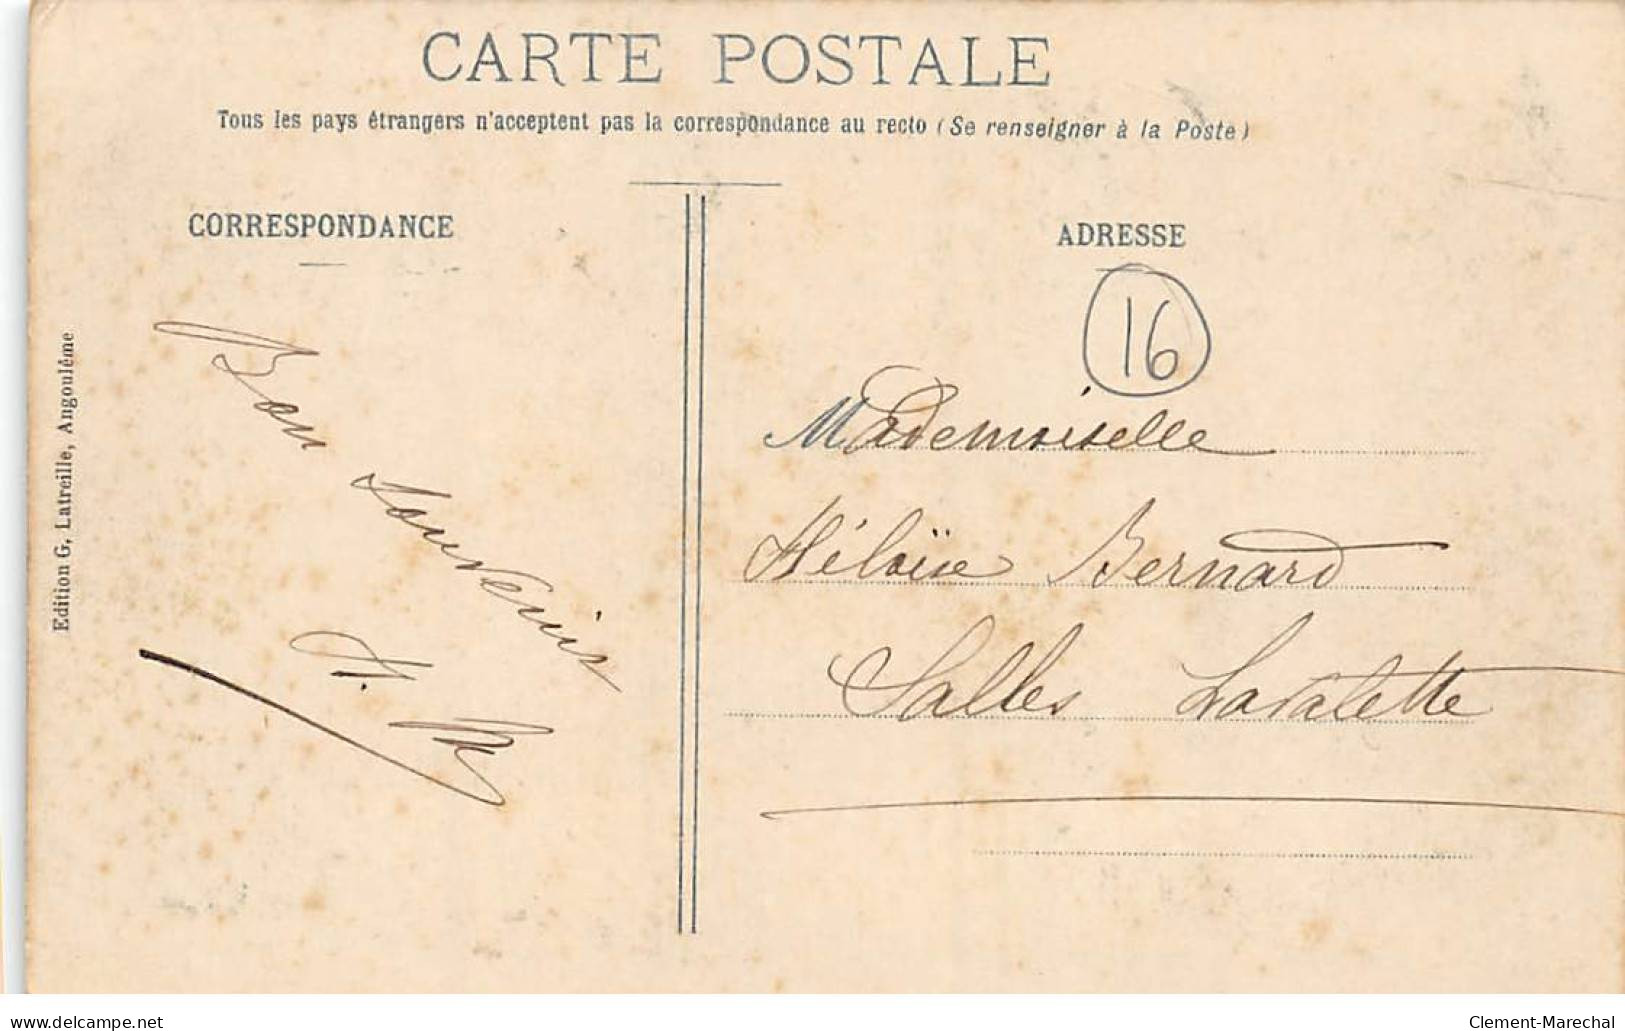 CARTE POSTALE
Tous les pays étrangers n'acceptent pas la correspondance au recto (Se renseigner à la Poste)
CORRESPONDANCE
Bon
souvenir
Edition G. Latreille, Angoulême
ADRESSE
16
Mademoiselle
Héloïse Bernard
Salles Lavalette
www.delcampe.net
Clement-Marechal